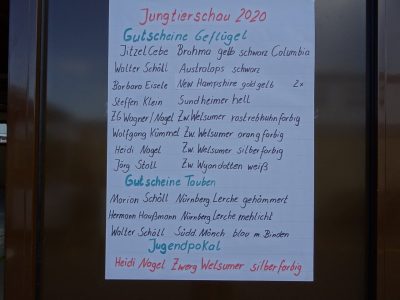 Jungtierschau 2020
Gutscheine Geflügel
Jitzel Cebe Brahma gelb schwarz Columbia
Walter Schöll Australops schwarz
Barbara Eisele New Hampshire goldgelb 2x
Steffen Klein Sundheimer hell
ZG Wagner/Nagel Zw. Welsumer rostrebhuhnfarbig
Wolfgang Kümmel Zw. Welsumer orangfarbig
Heidi Nagel Zw. Welsumer silberfarbig
Jörg Stoll Zw Wyandotten weiß
Gutscheine Tauben
Marion Schöll Nürnberg Lerche gehämmert
Hermann Haußmann Nürnberg Lerche mehlicht
Walter Schöll Südd. Mönch blau m. Binden
Jugendpokal
Heidi Nagel Zwerg Welsumer silberfarbig